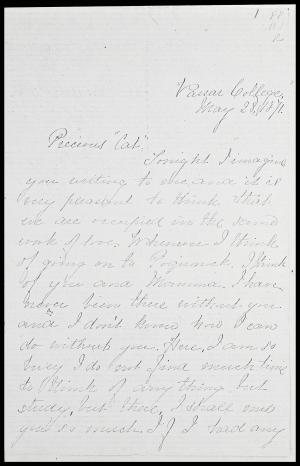 1
Vassar College,
May 28, 1871.
Precious "Cat".
Tonight I imagine
you writing to me, and it is
very pleasant to think that
we are occupied in the same
work of love. Whenever I think
of going on to I think
of you and Mamma. I have
never been there without you
and I don't know how I can
do without you. Here, I am so
busy I do not find much time
to think of any thing but
study, but there, I shall miss
you so much. If I had any